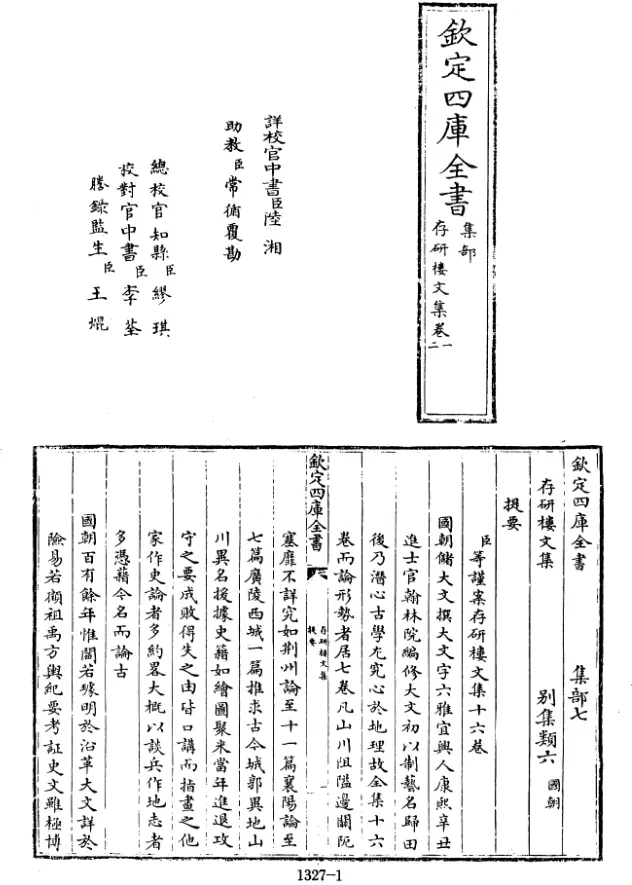 欽定四庫全書
集部
存研樓文集卷一二
詳校官中書臣陸湘
助教臣常循覆勘
總校官知縣臣繆琪
校對官中書臣李荃
謄錄監生臣王焜
欽定四庫全書
集部七
存研樓文集
別集類六 國朝
提要
臣等謹案存研樓文集十六卷
國朝儲大文撰大文字六雅宜興人康熙辛丑
進士官翰林院編修大文初以制藝名歸田
後乃潛心古學尤究心於地理故全集十六
卷而論形勢者居七卷凡山川阻隘邊關阨
欽定四庫全書
存研樓文集
提要
塞靡不詳究如荆州論至十一篇襄陽論至
七篇廣陵西城一篇推求古今城郭異地山
川異名援據史籍如繪圖聚米當年進退攻
守之要成敗得失之由皆口講而指畫之他
家作史論者多約畧大概以談兵作地志者
多憑藉今名而論古
國朝百有餘年惟閻若璩明於沿革大文詳於
險易若顧祖禹方輿紀要考証史文雖極博
1327-1